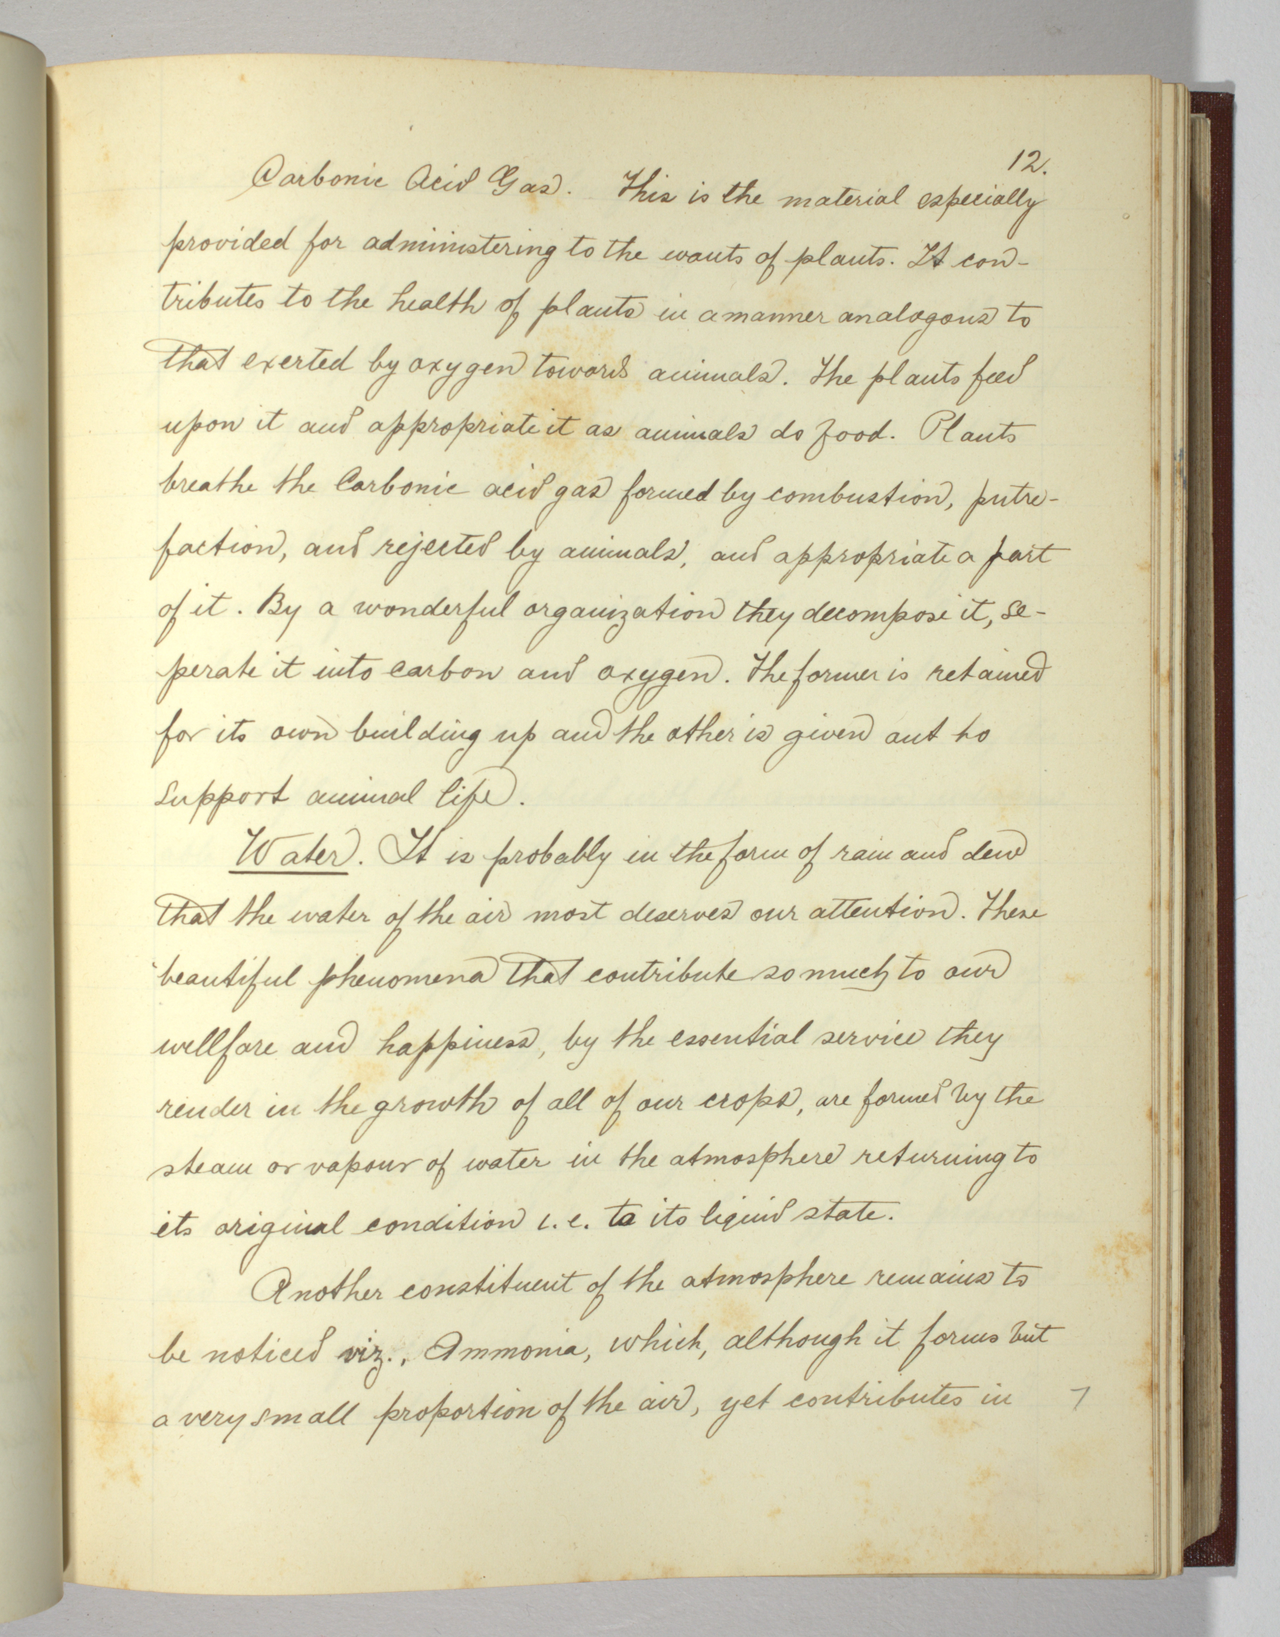 12.
Carbonic Acid Gas. This is the material especially
provided for administering to the wants of plants. It con-
tributes to the health of plants in a manner analogous to
that exerted by oxygen towards animals. The plants feed
upon it and appropriate it as animals do food. Plants
breathe the Carbonic acid gas formed by combustion, putre-
faction, and rejected by animals, and appropriate a part
of it. By a wonderful organization they decompose it, se-
perate it into carbon and oxygen. The former is retained
for its own building up and the other is given out to
support animal life.
Water. It is probably in the form of rain and dew
that the water of the air most deserves our attention. These
beautiful phenomena that contribute so much to our
wellfare and happiness, by the essential service they
render in the growth of all of our crops, are formed by the
steam or vapour of water in the atmosphere returning to
its original condition i.e. to its liquid state.
Another constituent of the atmosphere remains to
be noticed viz., Ammonia, which, although it forms but
a very small proportion of the air, yet contributes in
7